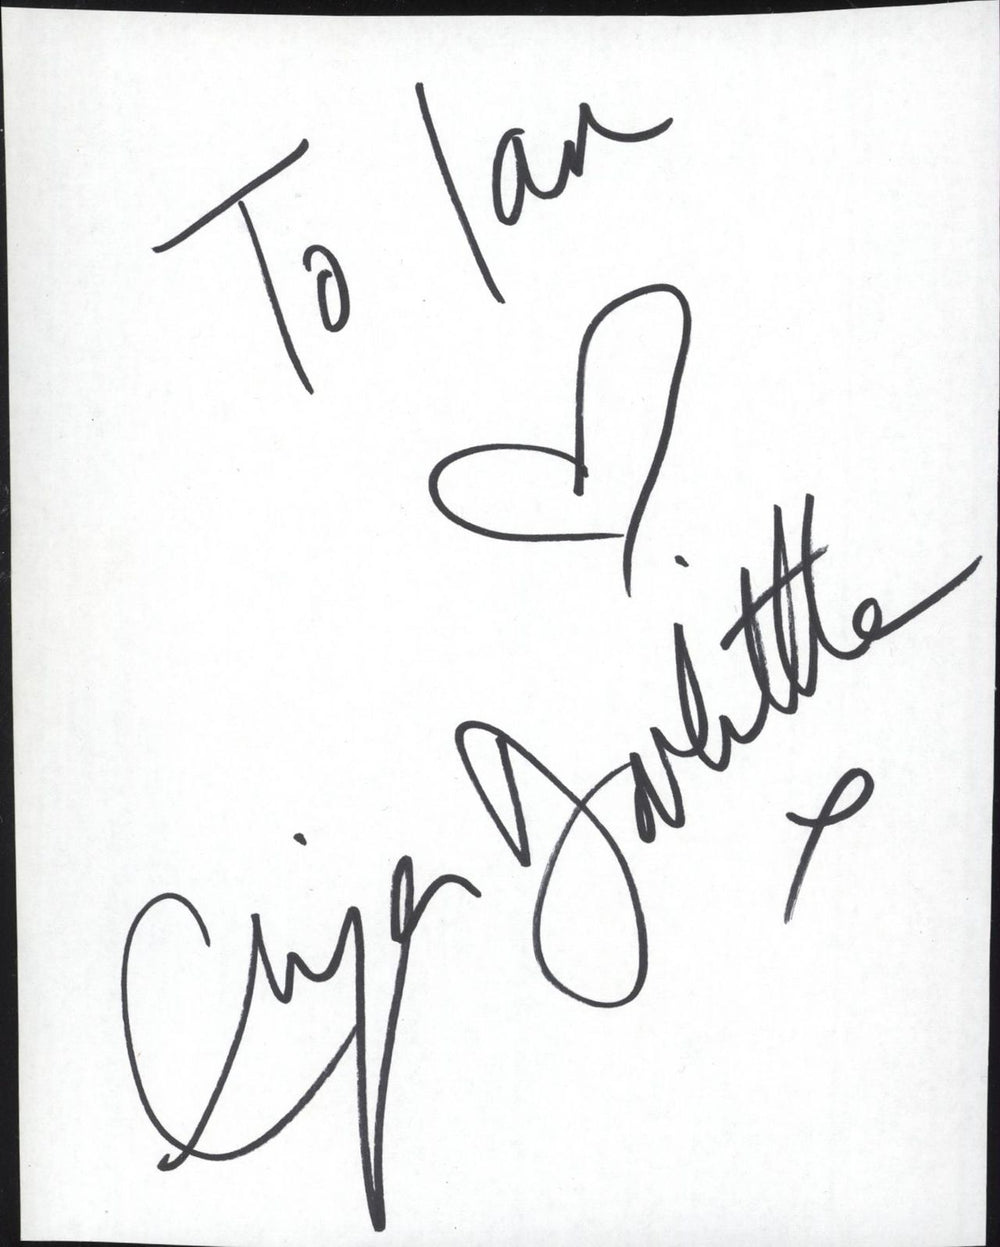 To Ian
Eliza Doolittle
x